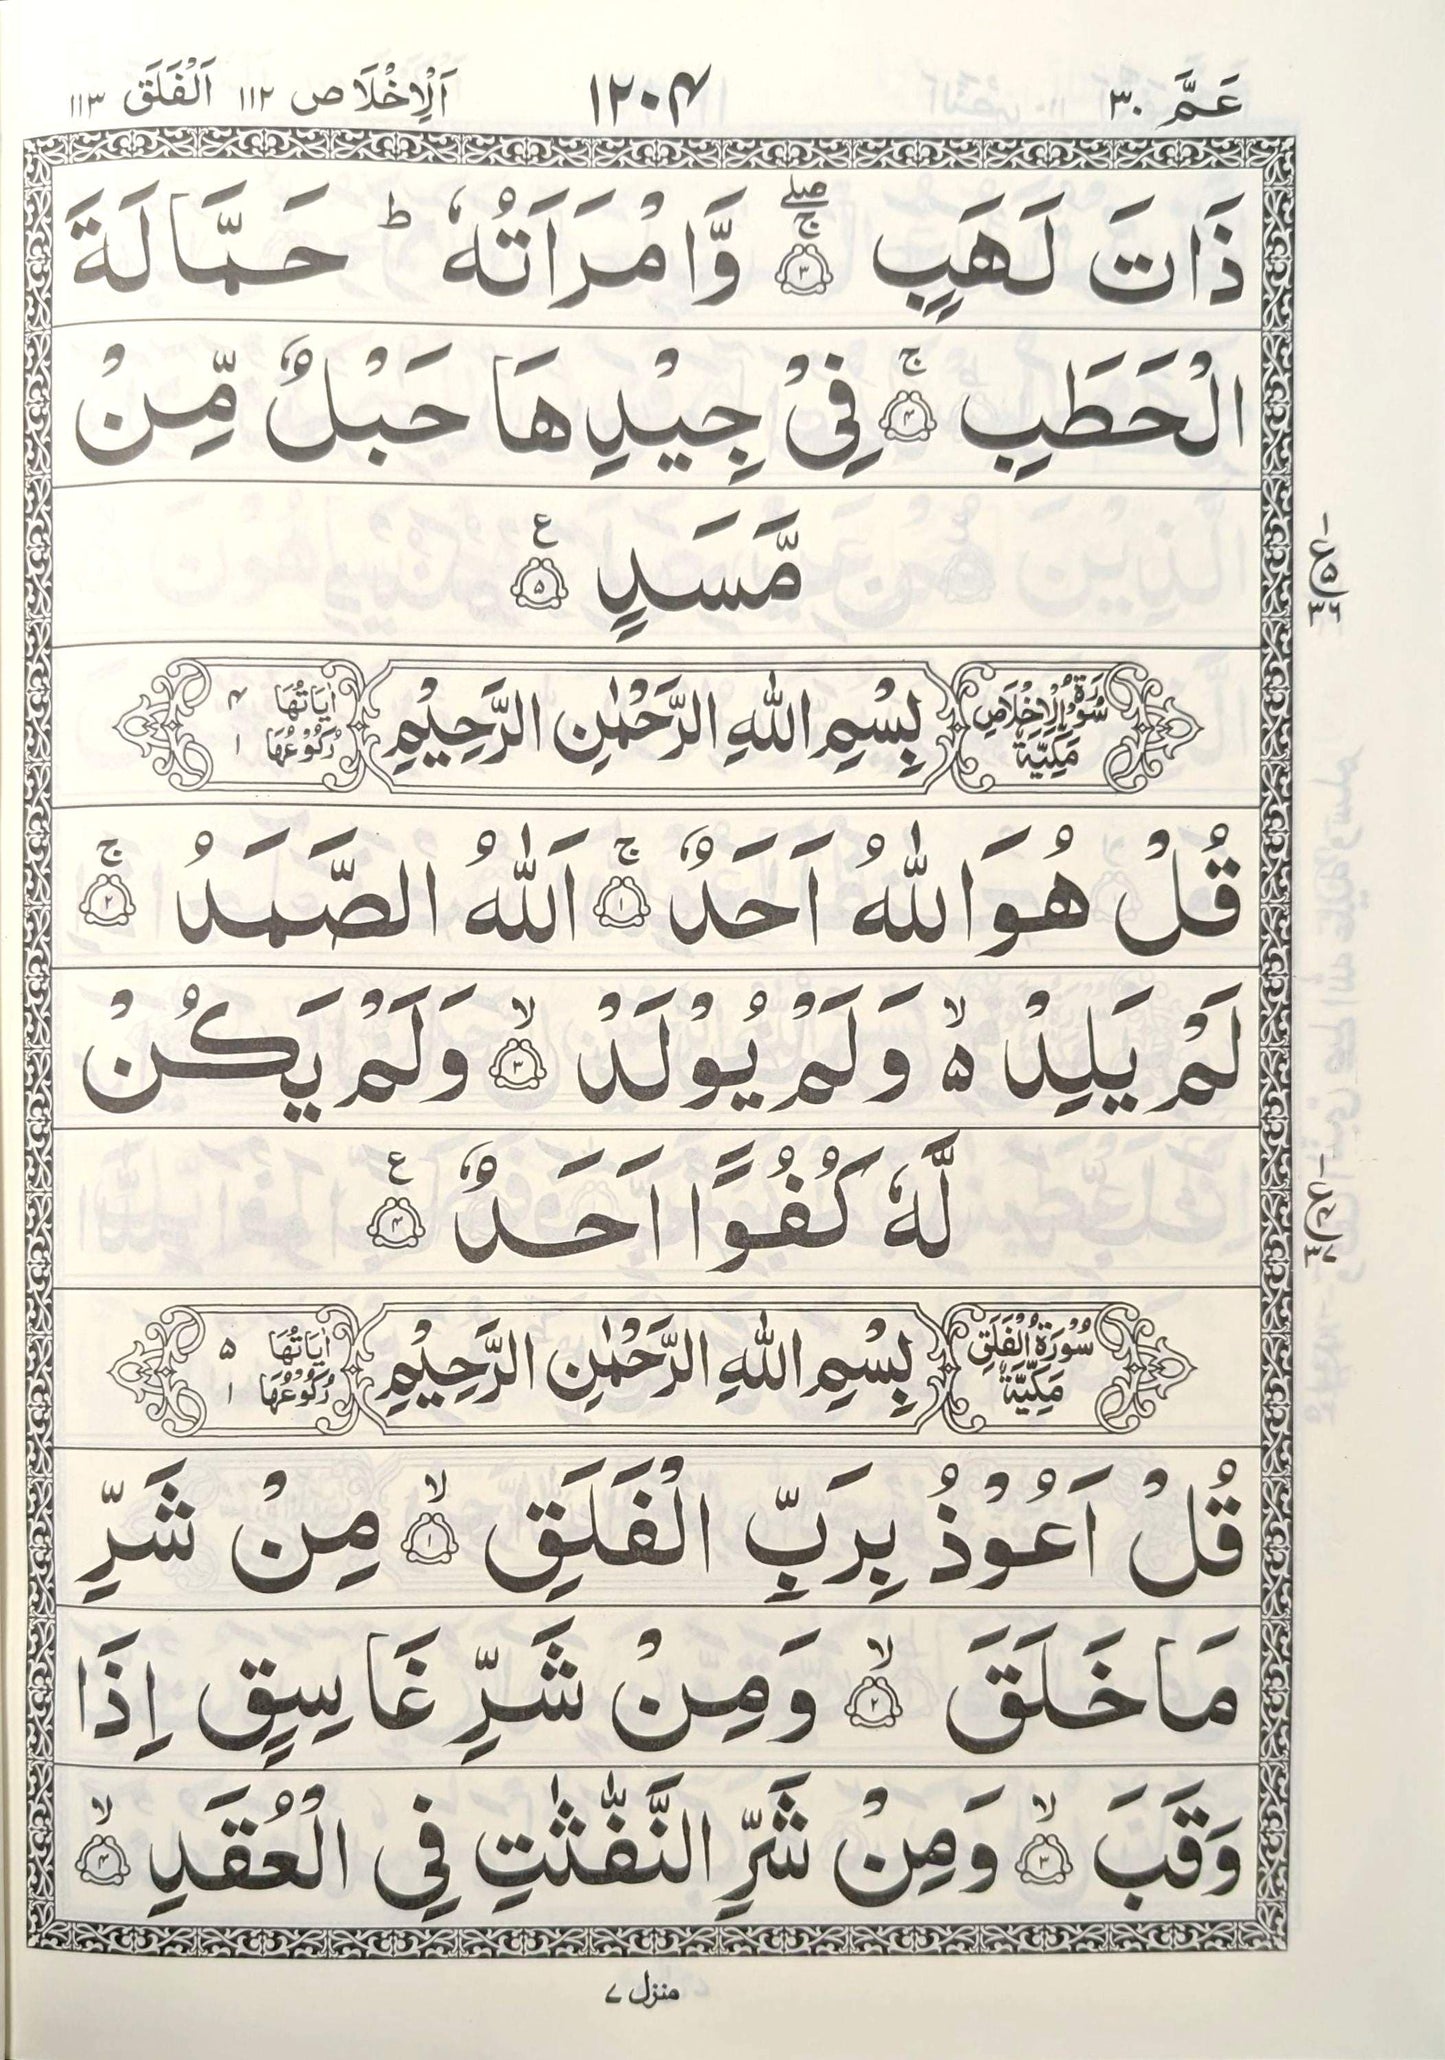 عَمَّ ٣٠ ١٢٠۴ اَلْاِخْلَاص ١١٢ اَلْفَلَق ١١٣
ذَاتَ لَهَبٍ ۝٣ۚۖ وَّامْرَاَتُهٗ ؕ حَمَّالَةَ
الْحَطَبِ ۝۴ۚ فِیْ جِیْدِهَا حَبْلٌ مِّنْ
مَّسَدٍ ۝۵ ع
سُوْرَةُ الْاِخْلَاصِ مَكِّیَّةٌ بِسْمِ اللّٰهِ الرَّحْمٰنِ الرَّحِیْمِ اٰیَاتُهَا ۴ رُكُوْعُهَا ١
قُلْ هُوَ اللّٰهُ اَحَدٌ ۝١ۚ اَللّٰهُ الصَّمَدُ ۝٢ۚ
لَمْ یَلِدْ ۵ۙ وَلَمْ یُوْلَدْ ۝٣ۙ وَلَمْ یَكُنْ
لَّهٗ كُفُوًا اَحَدٌ ۝۴ ع
سُوْرَةُ الْفَلَقِ مَكِّیَّةٌ بِسْمِ اللّٰهِ الرَّحْمٰنِ الرَّحِیْمِ اٰیَاتُهَا ۵ رُكُوْعُهَا ١
قُلْ اَعُوْذُ بِرَبِّ الْفَلَقِ ۝١ۙ مِنْ شَرِّ
مَا خَلَقَ ۝٢ۙ وَمِنْ شَرِّ غَاسِقٍ اِذَا
وَقَبَ ۝٣ۙ وَمِنْ شَرِّ النَّفّٰثٰتِ فِی الْعُقَدِ ۝۴ۙ
منزل ٧